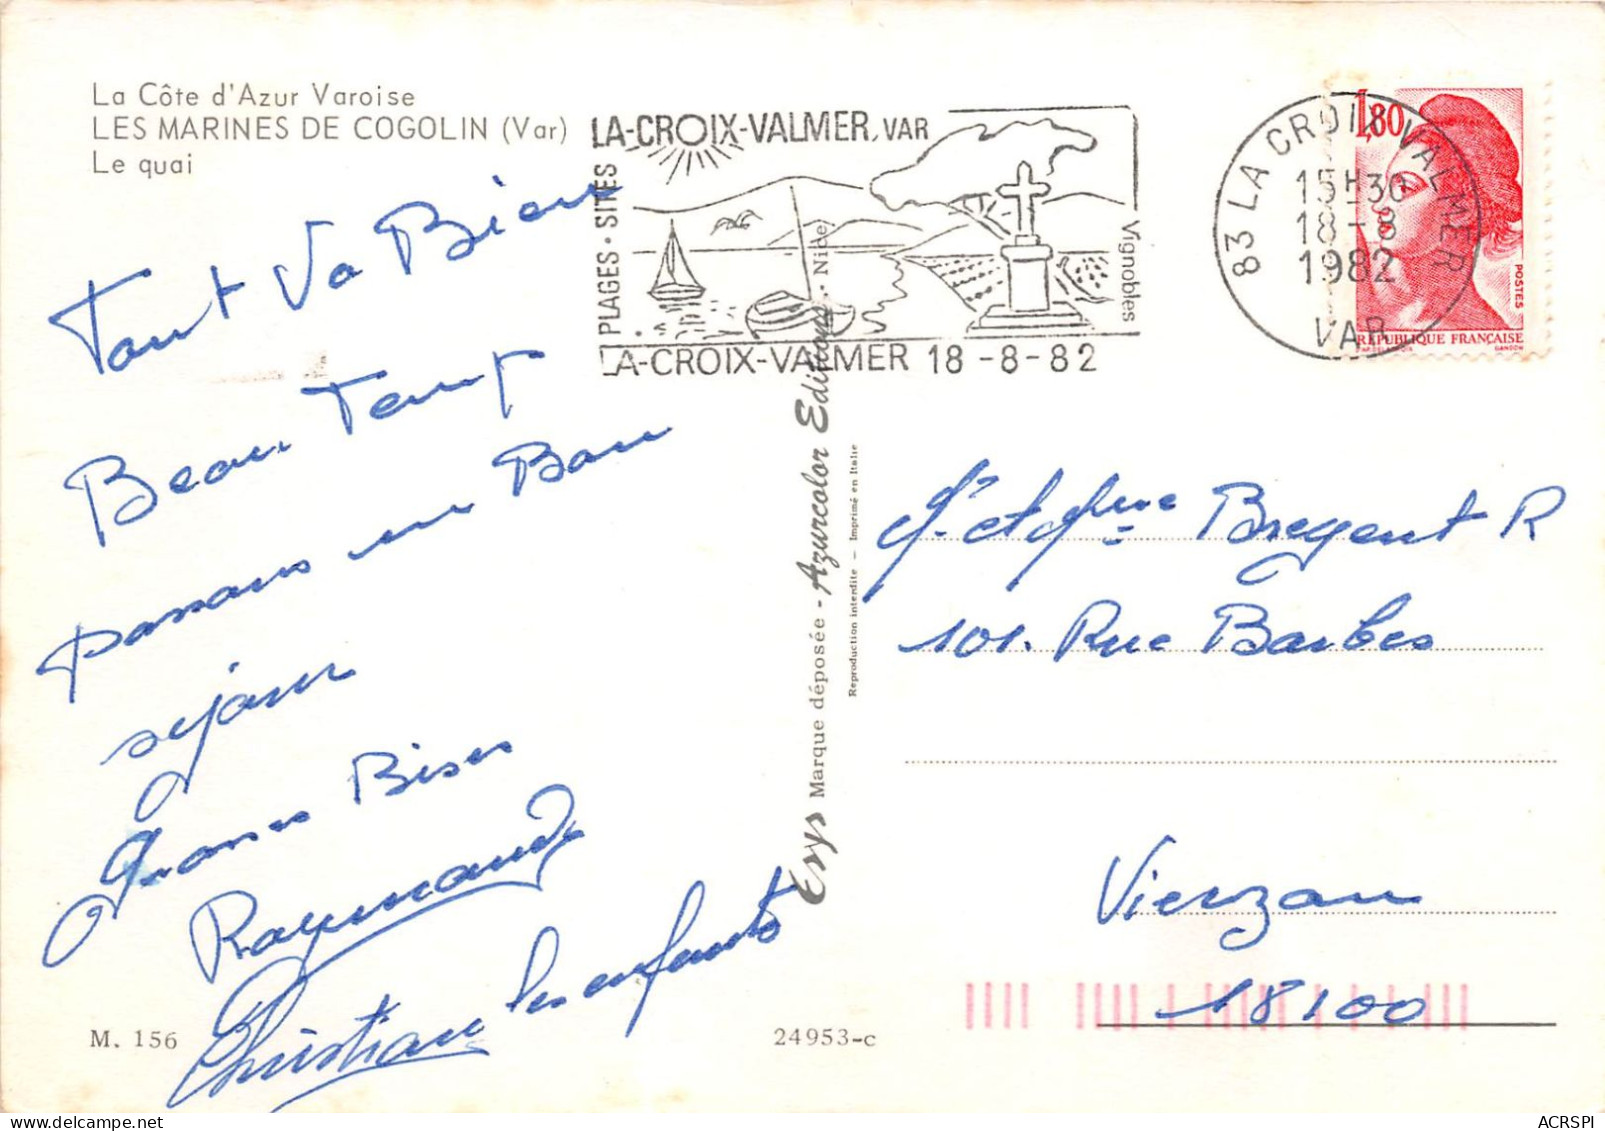 La Côte d'Azur Varoise
LES MARINES DE COGOLIN (Var)
Le quai
LA-CROIX-VALMER, VAR
PLAGES · SITES
Vignobles
LA-CROIX-VALMER 18 -8-82
83 LA CROIX VALMER
15H30
18-8
1982
VAR
1,80
POSTES
RÉPUBLIQUE FRANÇAISE
GANDON
Tout Va Bien
Beau Temp
passons un Bon
sejour
Grosses Bises
Raymonde
Christian les enfants
Erys Marque déposée - Azurcolor Editions - Nice
Reproduction interdite - Imprimé en Italie
Mr et Mme Bregent R
101. Rue Barbes
Vierzon
18100
M. 156
24953-c
ACRSPI